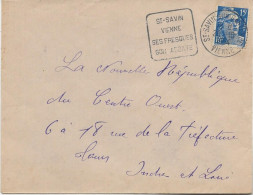 ST-SAVIN
VIENNE
SES FRESQUES
SON ABBAYE
ST-SAVIN
VIENNE
15F
La Nouvelle République
du Centre Ouest
6 à 18 rue de la Préfecture
Tours
Indre et Loire